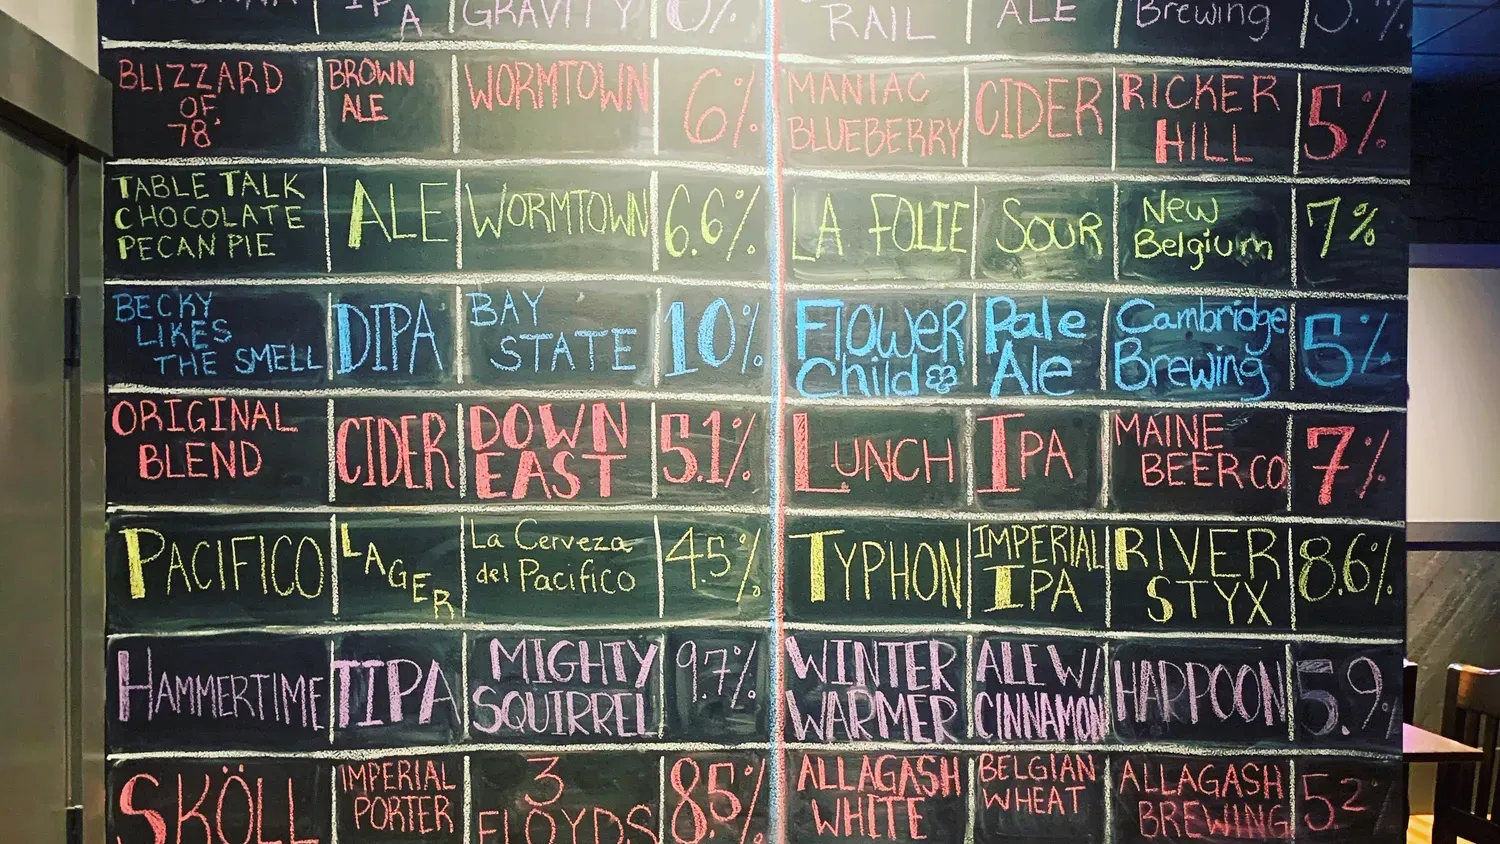 IPA
GRAVITY
0%
RAIL
ALE
Brewing
BLIZZARD
OF
78
BROWN
ALE
WORMTOWN
6%
MANIAC
BLUEBERRY
CIDER
RICKER
HILL
5%
TABLE TALK
CHOCOLATE
PECAN PIE
ALE
WORMTOWN
6.6%
LA FOLIE
SOUR
New
Belgium
7%
BECKY
LIKES
THE SMELL
DIPA
BAY
STATE
10%
FLOWER
Child
Pale
Ale
Cambridge
Brewing
5%
ORIGINAL
BLEND
CIDER
DOWN
EAST
5.1%
LUNCH
IPA
MAINE
BEER CO
7%
PACIFICO
LAGER
La Cerveza
del Pacifico
4.5%
TYPHON
IMPERIAL
IPA
RIVER
STYX
8.6%
HAMMERTIME
TIPA
MIGHTY
SQUIRREL
9.7%
WINTER
WARMER
ALE W/
CINNAMON
HARPOON
5.9%
SKÖLL
IMPERIAL
PORTER
3
FLOYDS
8.5%
ALLAGASH
WHITE
BELGIAN
WHEAT
ALLAGASH
BREWING
5.2%